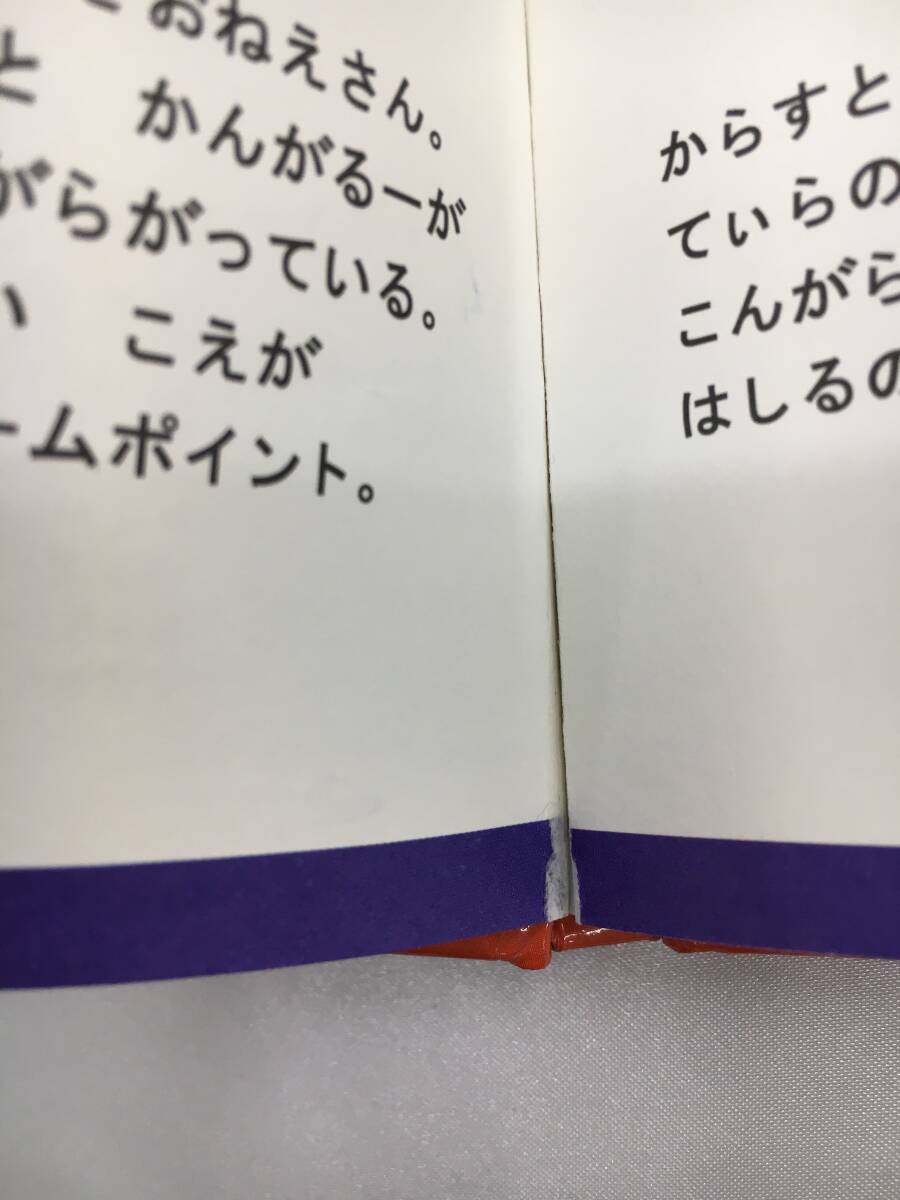 おねえさん。
と かんがるーが
がらがっている。
い こえが
ームポイント。
からすと
てぃらの
こんがら
はしるの